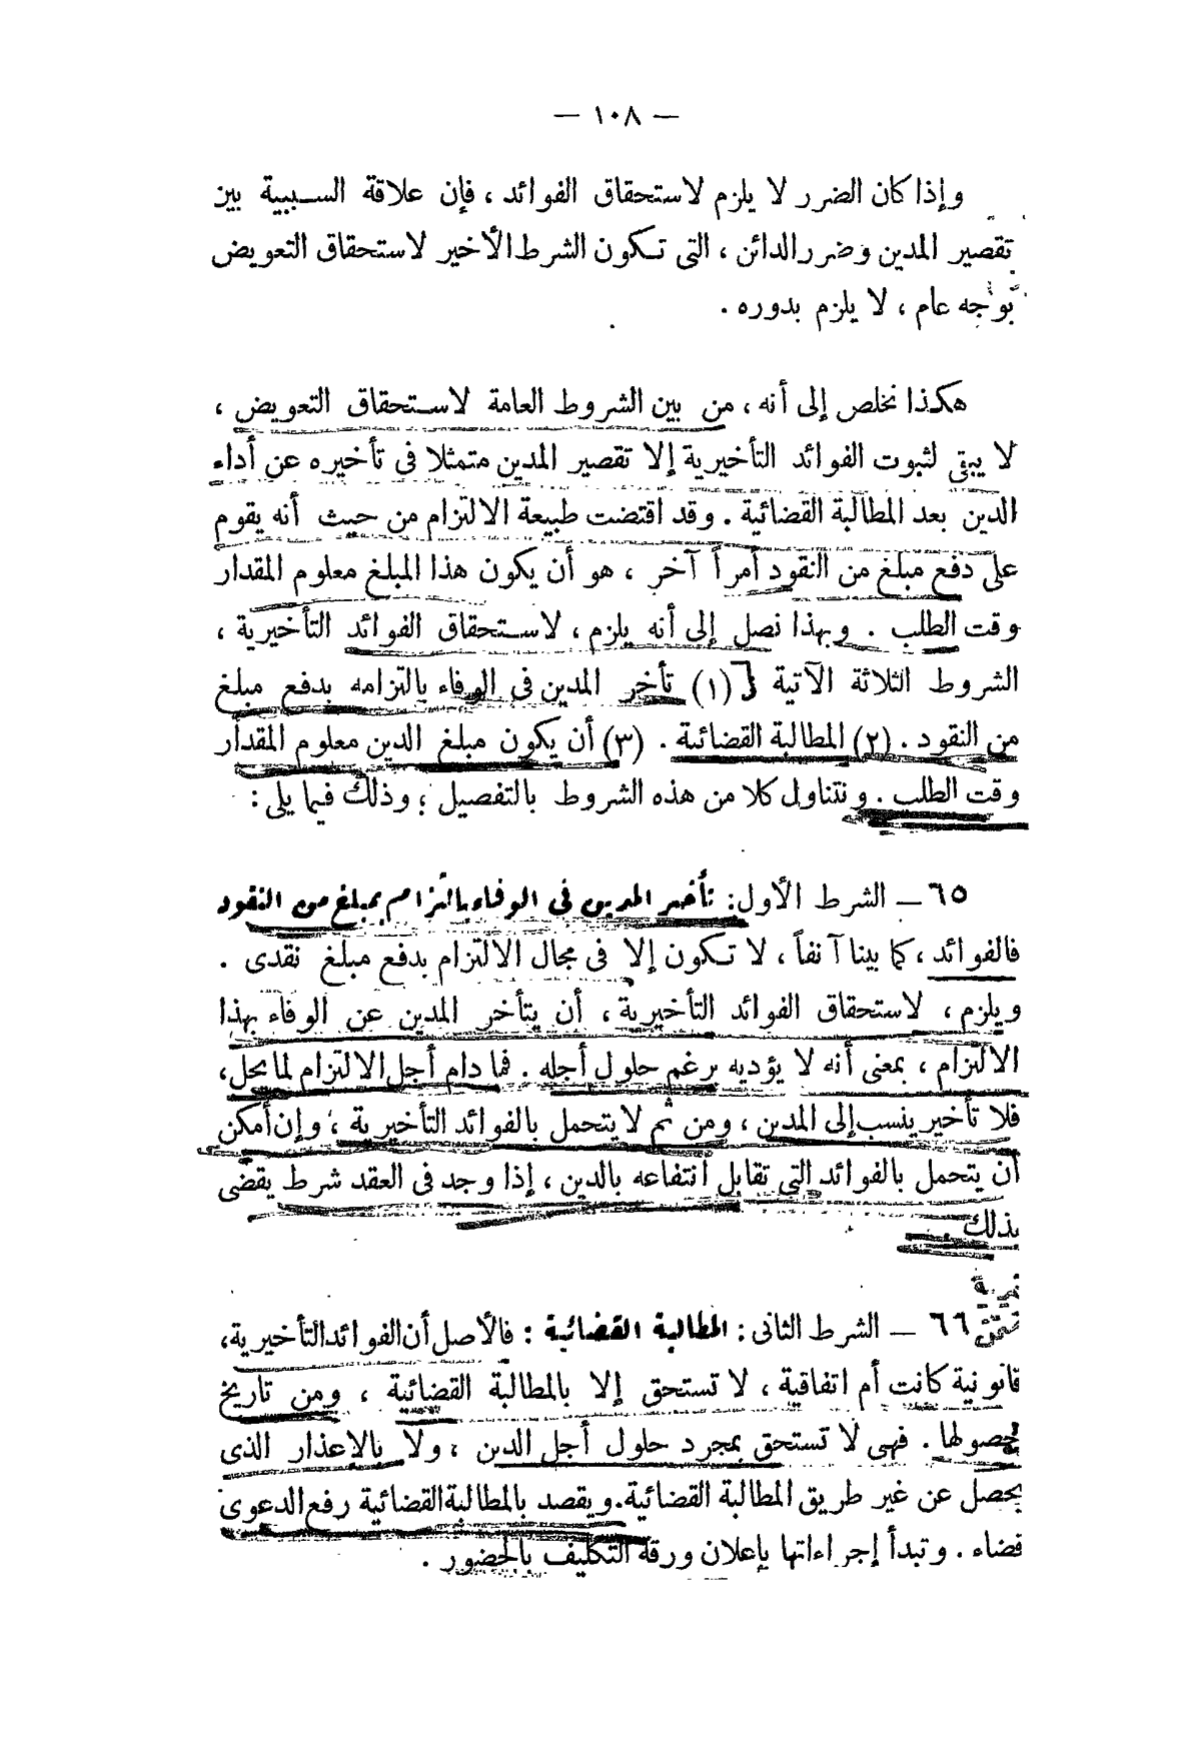 — ١٠٨ —
وإذا كان الضرر لا يلزم لاستحقاق الفوائد ، فإن علاقة السببية بين
تقصير المدين وضرر الدائن ، التى تكون الشرط الأخير لاستحقاق التعويض
بوجه عام ، لا يلزم بدوره .
هكذا نخلص إلى أنه ، من بين الشروط العامة لاستحقاق التعويض ،
لا يبقى لثبوت الفوائد التأخيرية إلا تقصير المدين متمثلا فى تأخيره عن أداء
الدين بعد المطالبة القضائية . وقد اقتضت طبيعة الالتزام من حيث أنه يقوم
على دفع مبلغ من النقود أمراً آخر ، هو أن يكون هذا المبلغ معلوم المقدار
وقت الطلب . وبهذا نصل إلى أنه يلزم ، لاستحقاق الفوائد التأخيرية ،
الشروط الثلاثة الآتية : (١) تأخر المدين فى الوفاء بالتزامه بدفع مبلغ
من النقود . (٢) المطالبة القضائية . (٣) أن يكون مبلغ الدين معلوم المقدار
وقت الطلب . ونتناول كلا من هذه الشروط بالتفصيل ؛ وذلك فيما يلى :
٦٥ — الشرط الأول : تأخر المدين فى الوفاء بالتزام بمبلغ من النقود
فالفوائد ، كما بينا آنفاً ، لا تكون إلا فى مجال الالتزام بدفع مبلغ نقدى .
ويلزم ، لاستحقاق الفوائد التأخيرية ، أن يتأخر المدين عن الوفاء بهذا
الالتزام ، بمعنى أنه لا يؤديه برغم حلول أجله . فما دام أجل الالتزام لما يحل ،
فلا تأخير ينسب إلى المدين ، ومن ثم لا يتحمل بالفوائد التأخيرية ؛ وإن أمكن
أن يتحمل بالفوائد التى تقابل انتفاعه بالدين ، إذا وجد فى العقد شرط يقضى
بذلك
٦٦ — الشرط الثانى : المطالبة القضائية : فالأصل أن الفوائد التأخيرية ،
قانونية كانت أم اتفاقية ، لا تستحق إلا بالمطالبة القضائية ، ومن تاريخ
حصولها . فهى لا تستحق بمجرد حلول أجل الدين ، ولا بالإعذار الذى
يحصل عن غير طريق المطالبة القضائية . ويقصد بالمطالبة القضائية رفع الدعوى
قضاء . وتبدأ إجراءاتها بإعلان ورقة التكليف بالحضور .